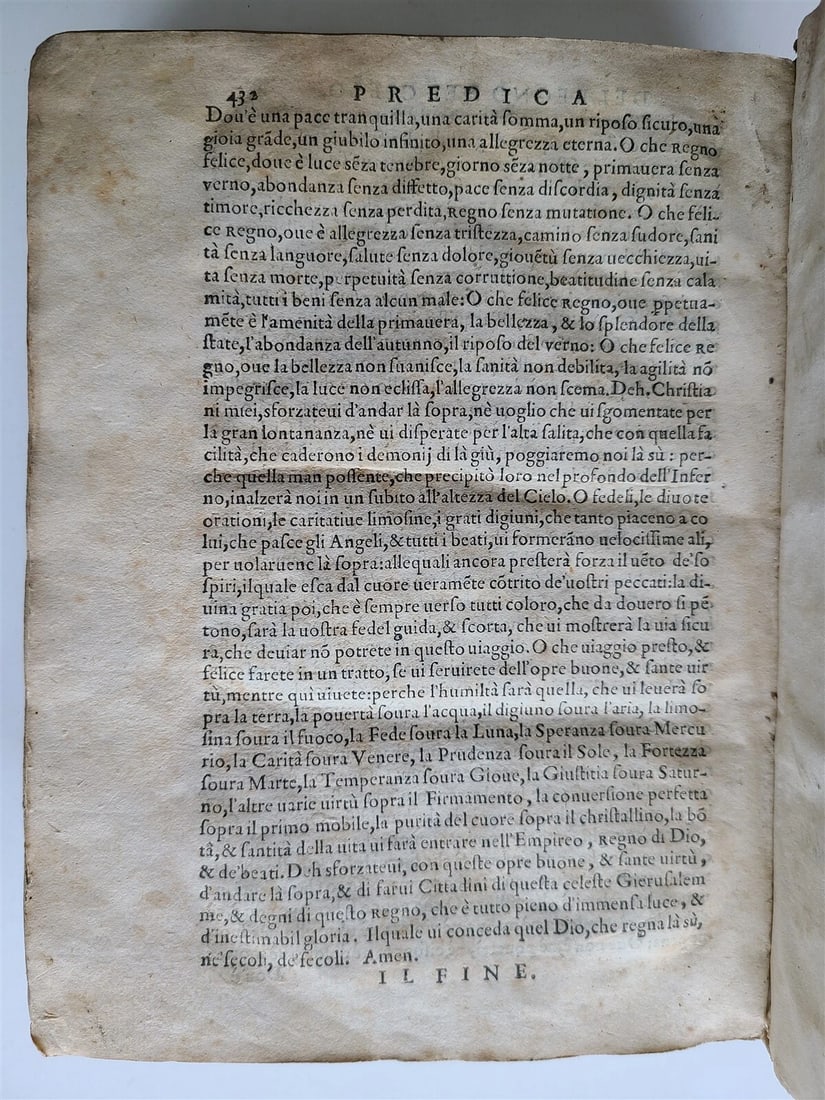 432 PREDICA
Dou'è una pace tranquilla,una carità ſomma,un ripoſo ſicuro,una
gioia grãde,un giubilo infinito,una allegrezza eterna. O che Regno
felice,doue è luce sẽza tenebre,giorno sẽza notte, primauera ſenza
verno,abondanza ſenza diffetto,pace ſenza diſcordia, dignità ſenza
timore,ricchezza ſenza perdita,Regno ſenza mutatione. O che feli-
ce Regno,oue è allegrezza ſenza triſtezza,camino ſenza ſudore,ſani
tà ſenza languore,ſalute ſenza dolore,giouẽtù ſenza uecchiezza,ui-
ta ſenza morte,perpetuità ſenza corruttione,beatitudine ſenza cala
mità,tutti i beni ſenza alcun male:O che felice Regno,oue ꝑpetua-
mẽte è l'amenità della primauera, la bellezza, & lo ſplendore della
ſtate,l'abondanza dell'autunno,il ripoſo del verno: O che felice Re
gno,oue la bellezza non ſuaniſce,la ſanità non debilita, la agilità nõ
impegriſce,la luce non ecliſſa,l'allegrezza non ſcema.Deh.Chriſtia
ni miei,sforzateui d'andar là ſopra,nè uoglio che ui ſgomentate per
la gran lontananza,nè ui diſperate per l'alta ſalita,che con quella fa
cilità,che caderono i demonij di là giù, poggiaremo noi là sù: per-
che quella man poſſente,che precipitò loro nel profondo dell'Infer
no,inalzerà noi in un ſubito all'altezza del Cielo. O fedeli,le diuote
orationi,le caritatiue limoſine,i grati digiuni,che tanto piaceno a co
lui,che paſce gli Angeli,& tutti i beati,ui formerãno uelociſſime ali,
per uolaruene là ſopra:allequali ancora preſterà forza il uẽto de'ſo
ſpiri,ilquale eſca dal cuore ueramẽte cõtrito de'uoſtri peccati:la di-
uina gratia poi,che è ſempre uerſo tutti coloro,che da douero ſi pẽ-
tono,ſarà la uoſtra fedel guida,& ſcorta, che ui moſtrerà la uia ſicu
ra,che deuiar nõ potrete in queſto uiaggio. O che uiaggio preſto,&
felice farete in un tratto, ſe ui ſeruirete dell'opre buone,& ſante uir
tù,mentre quì uiuete:perche l'humiltà ſarà quella, che ui leuerà ſo
pra la terra,la pouertà ſoura l'acqua,il digiuno ſoura l'aria, la limo-
ſina ſoura il fuoco,la Fede ſoura la Luna,la Speranza ſoura Mercu
rio,la Carità ſoura Venere, la Prudenza ſoura il Sole, la Fortezza
ſoura Marte,la Temperanza ſoura Gioue,la Giuſtitia ſoura Satur-
no,l'altre uarie uirtù ſopra il Firmamento, la conuerſione perfetta
ſopra il primo mobile,la purità del cuore ſopra il chriſtallino,la bõ
tà,& ſantità della uita ui farà entrare nell'Empireo, Regno di Dio,
& de'beati. Deh sforzateui, con queſte opre buone, & ſante uirtù,
d'andare là ſopra,& di farui Cittadini di queſta celeſte Gieruſalem
me,& degni di queſto Regno, che è tutto pieno d'immenſa luce, &
d'ineſtimabil gloria. Ilquale ui conceda quel Dio,che regna là sù,
ne'ſecoli, de'ſecoli. Amen.
IL FINE.